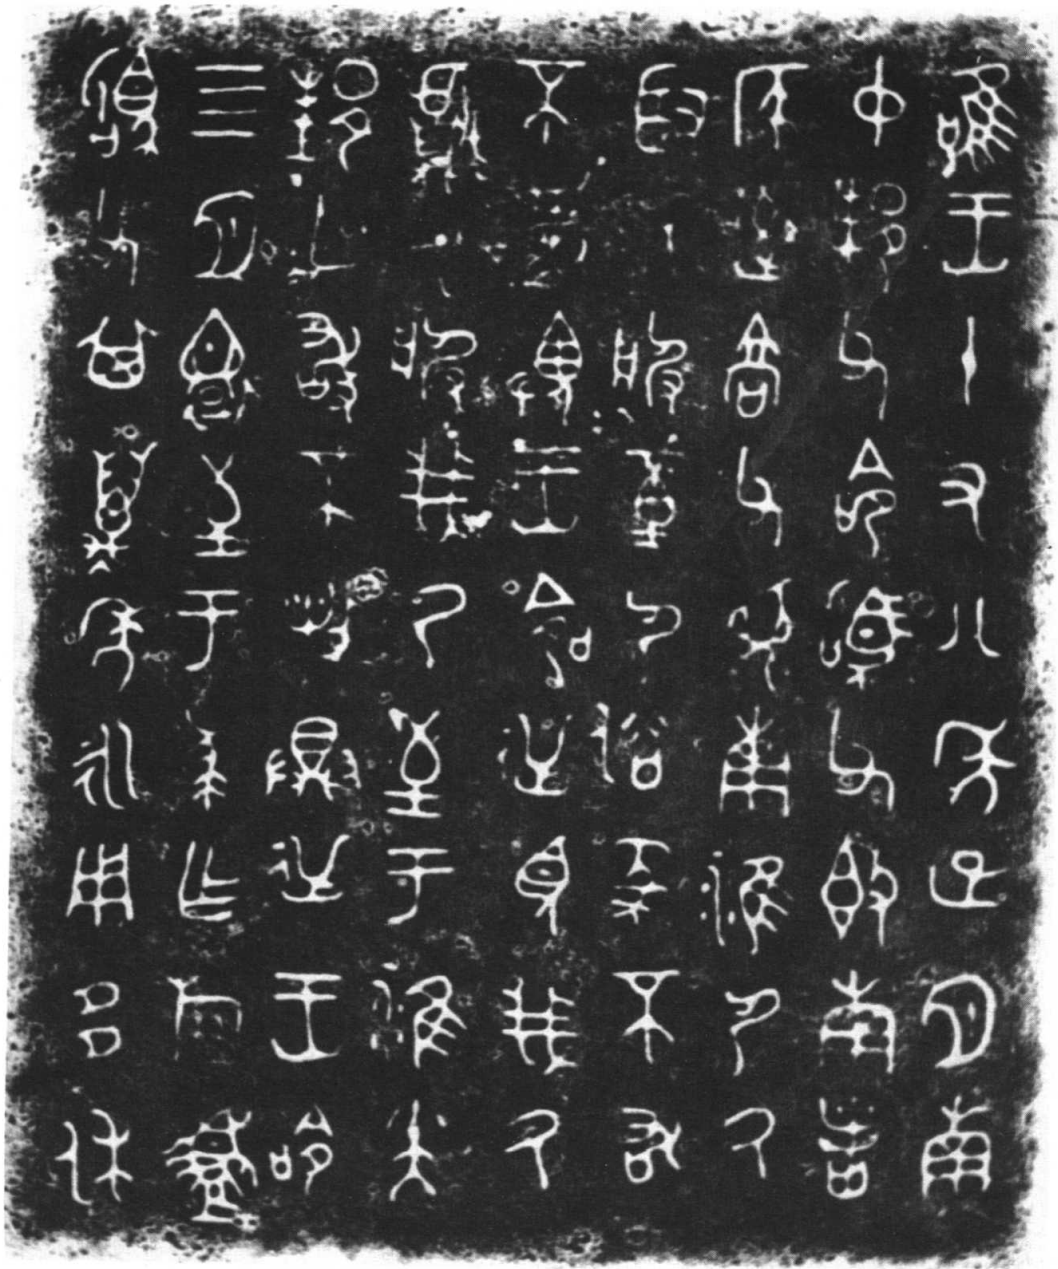 唯王十又八年正月南
中邦父命駒父即南者
侯率高父見南淮夷厥
取厥服堇夷俗㒸不敢
不苟畏王命逆見我厥
獻厥服我乃至于淮小大
邦亡敢不具逆王命
四月還至于蔡乍旅盨
駒父其萬年永用多休